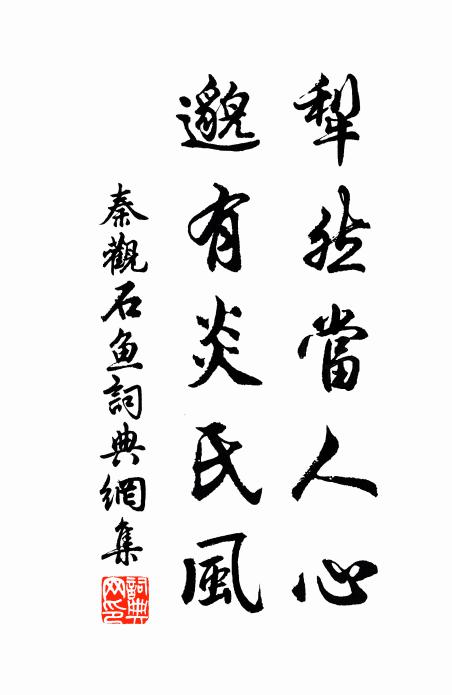 犁然當人心
邈有炎氏風
秦觀石魚詞典網集
詞典網印